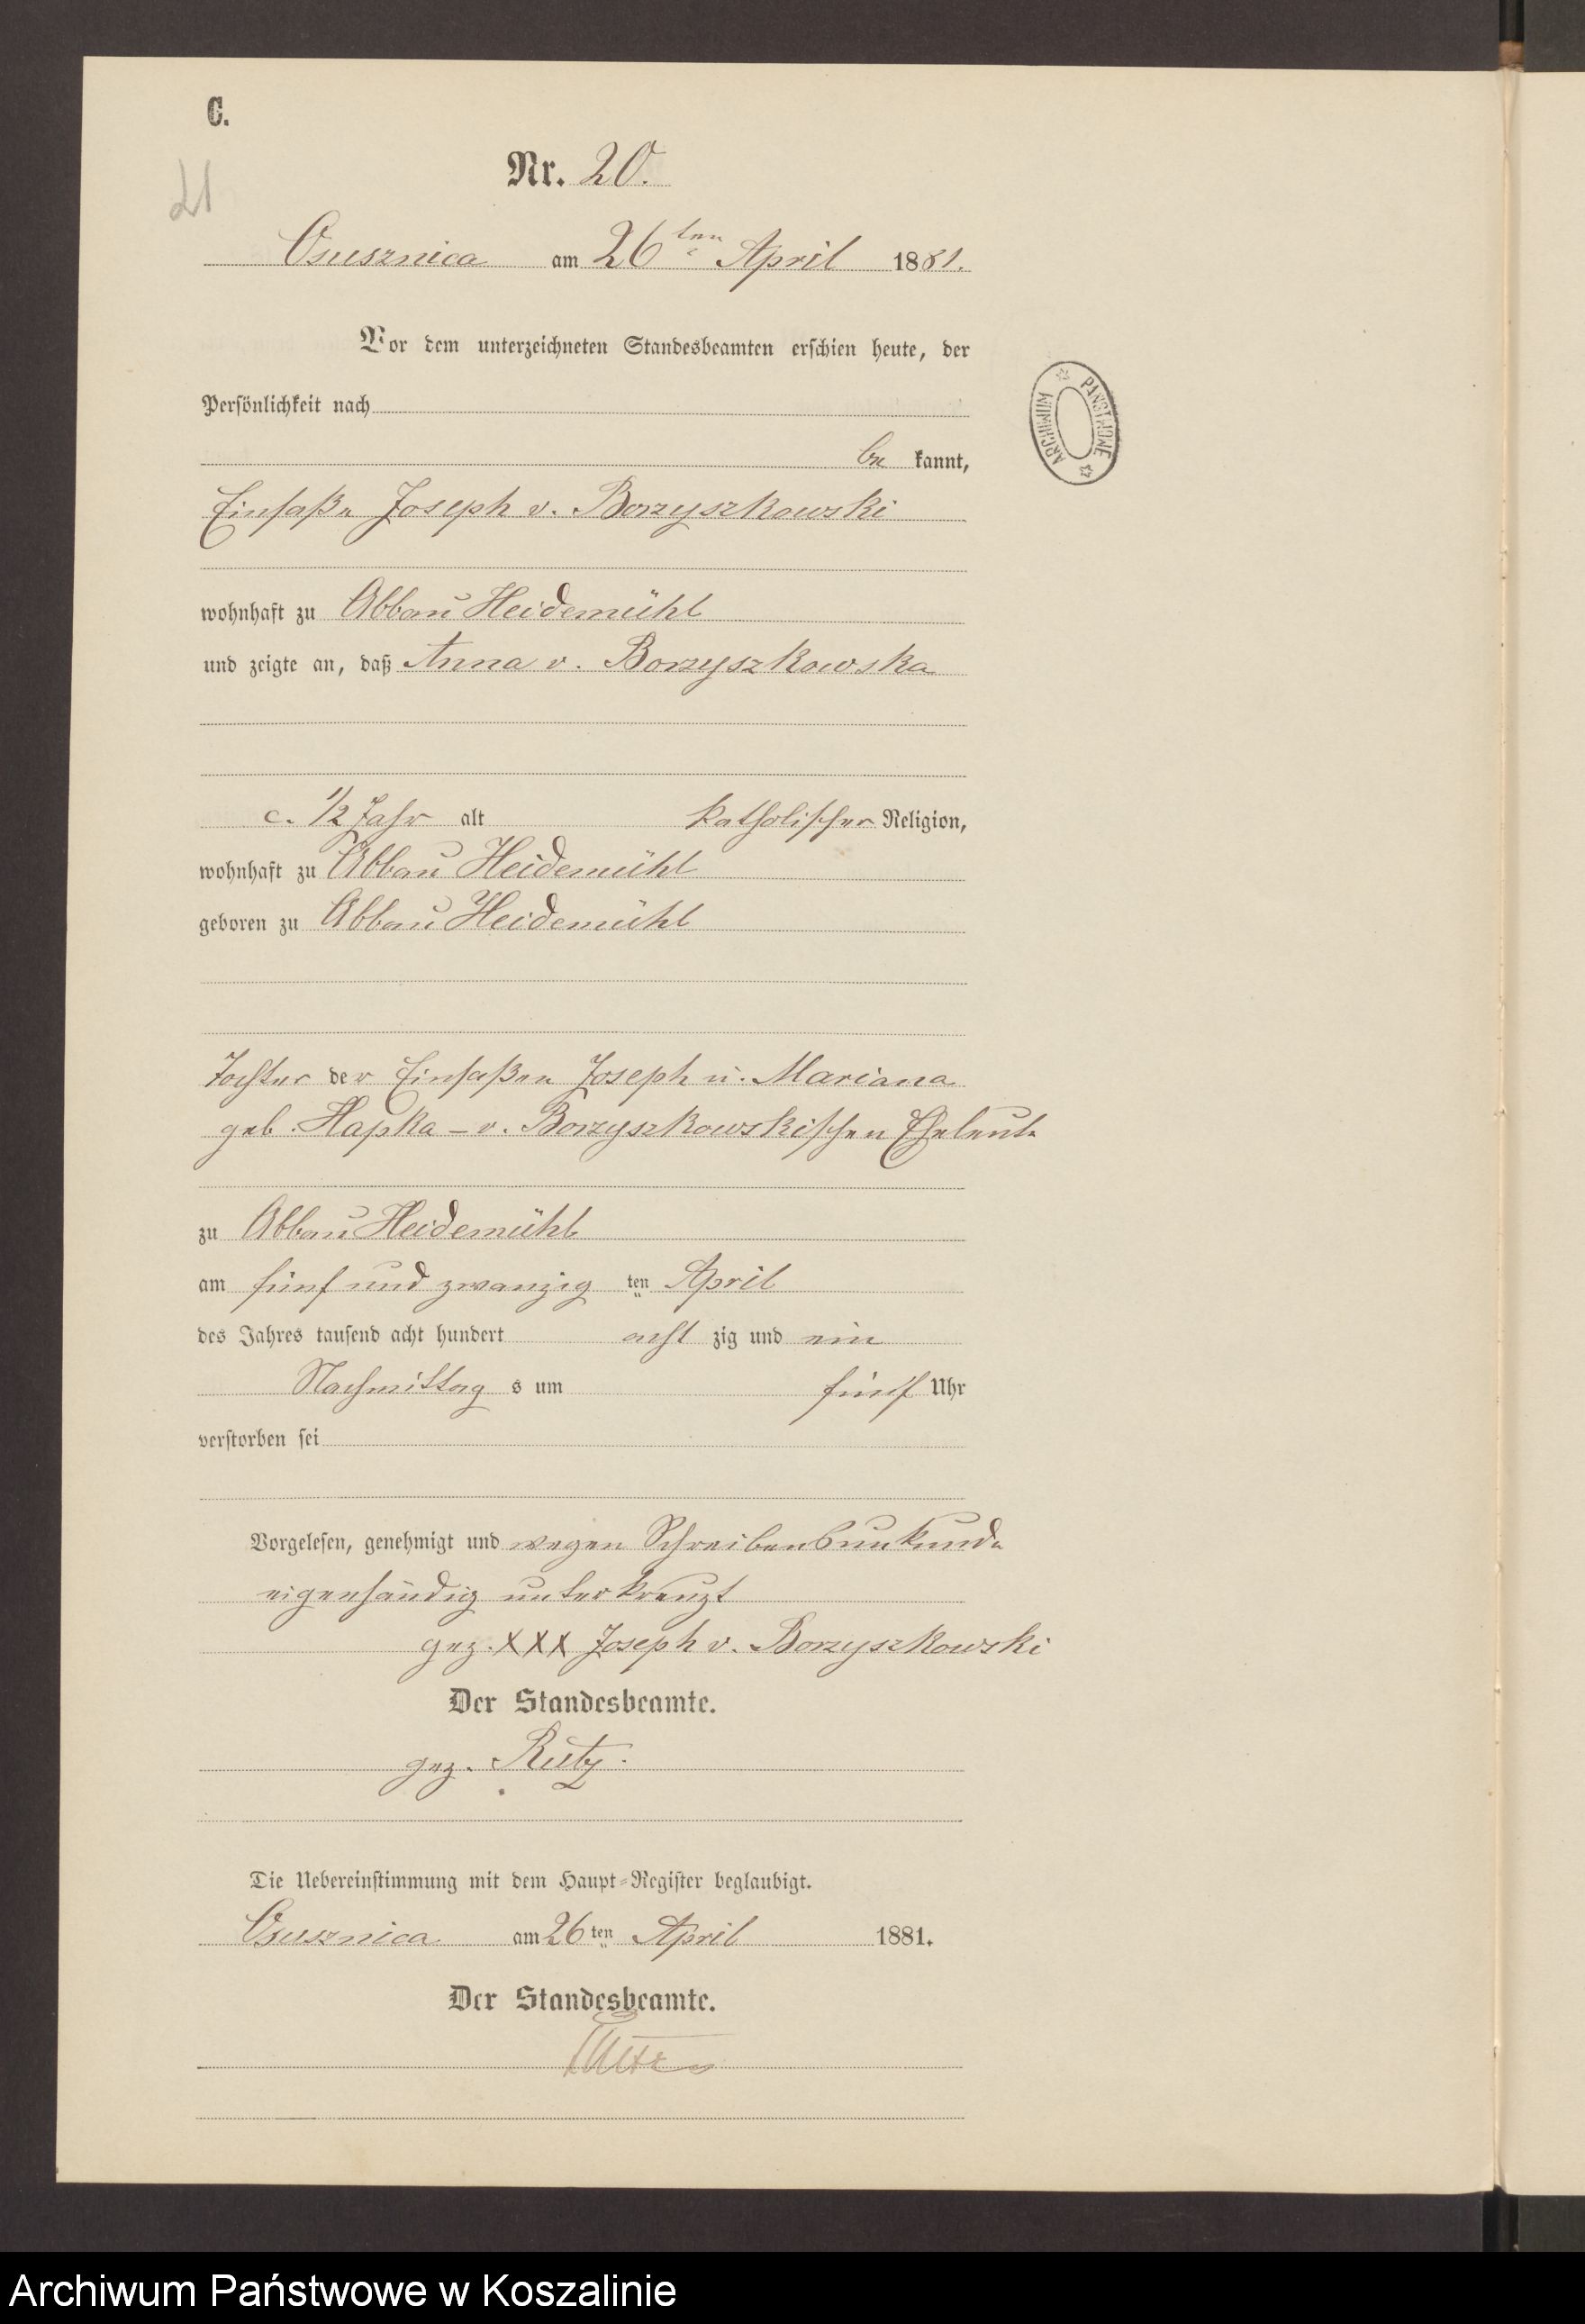 C.
21
Nr. 20.
Osusznica am 26ten April 1881.
Vor dem unterzeichneten Standesbeamten erschien heute, der
Persönlichkeit nach
be kannt,
Einsaße Joseph v. Borzyszkowski
wohnhaft zu Abbau Heidemühl
und zeigte an, daß Anna v. Borzyszkowska
c. 1/2 Jahr alt katholischer Religion,
wohnhaft zu Abbau Heidemühl
geboren zu Abbau Heidemühl
Tochter der Einsaßen Joseph u. Mariana
geb. Hapka - v. Borzyszkowskischen Eheleute
zu Abbau Heidemühl
am fünf und zwanzig ten April
des Jahres tausend acht hundert acht zig und ein
Nachmittag s um fünf Uhr
verstorben sei
Vorgelesen, genehmigt und wegen Schreibensunkunde
eigenhändig unterkreuzt
gez. XXX Joseph v. Borzyszkowski
Der Standesbeamte.
gez. Rutz.
Die Uebereinstimmung mit dem Haupt-Register beglaubigt.
Osusznica am 26ten April 1881.
Der Standesbeamte.
ARCHIWUM PAŃSTWOWE
Archiwum Państwowe w Koszalinie